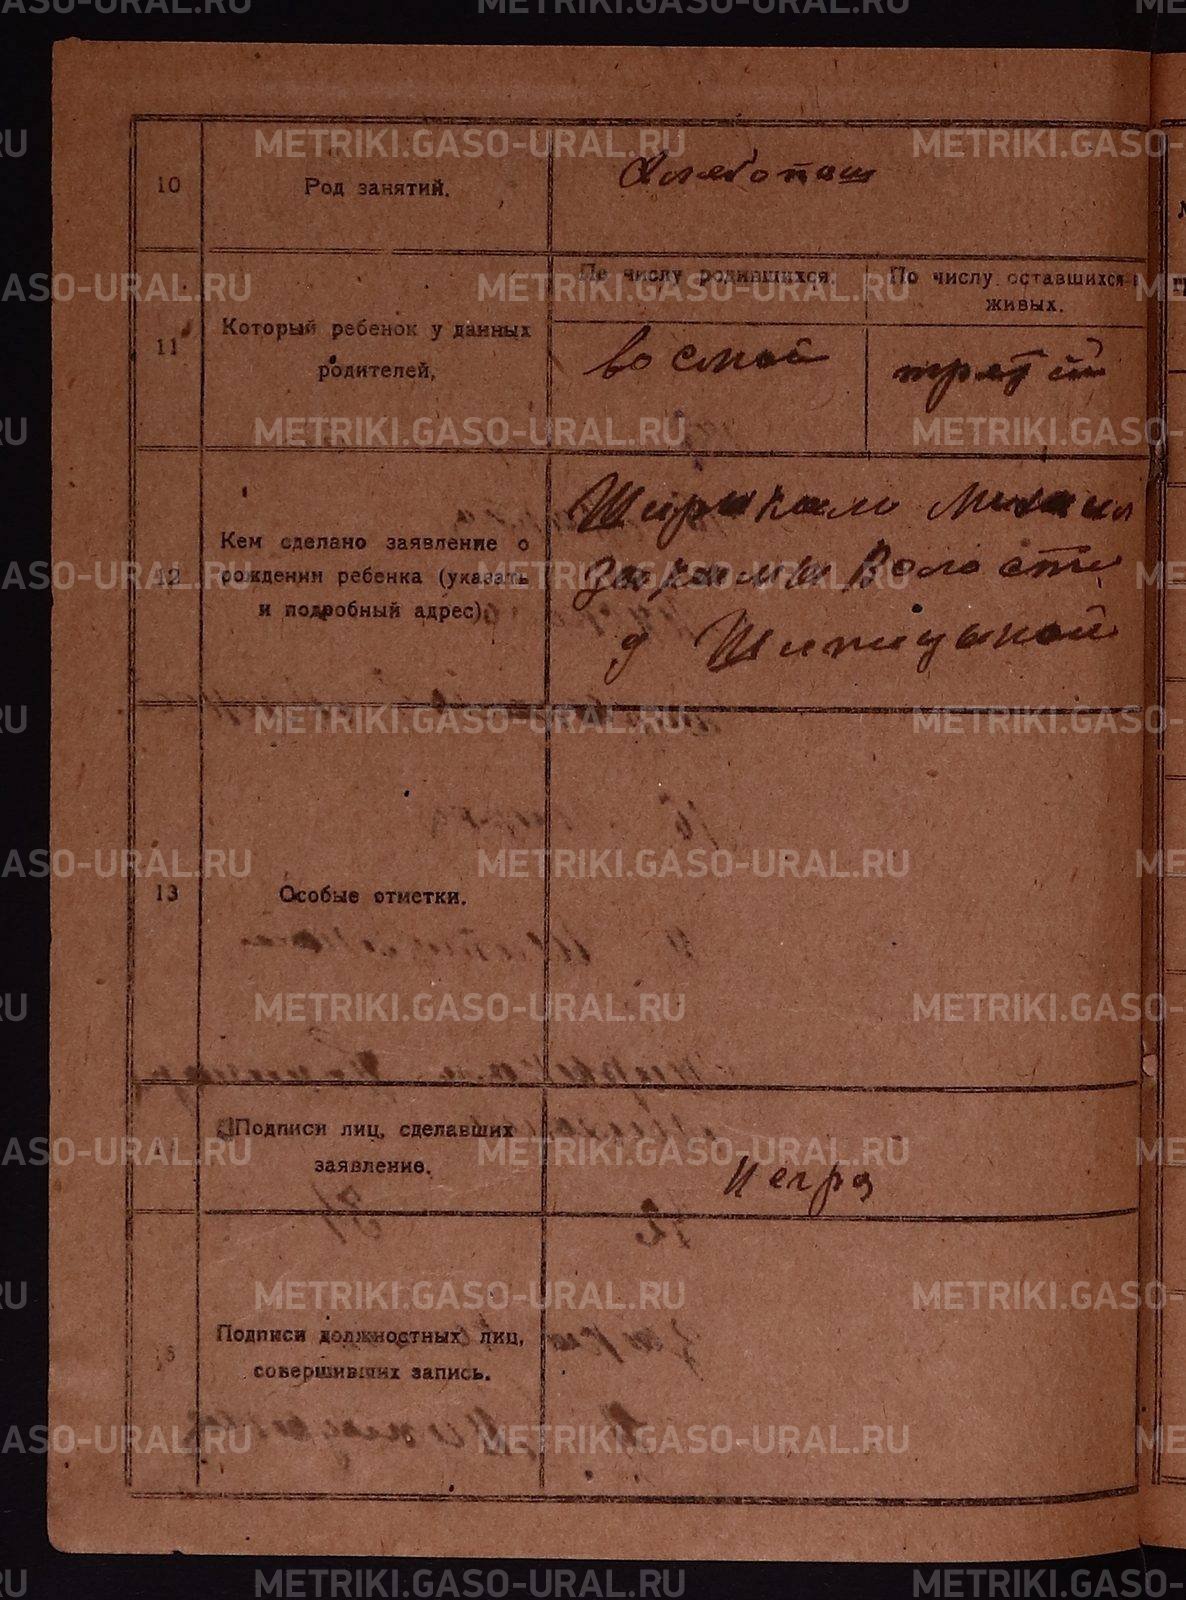 10
Род занятий.
Хлебопаш
11
Который ребенок у данных
родителей,
По числу родившихся.
По числу оставшихся в
живых.
восмой
третий
12
Кем сделано заявление о
рождении ребенка (указать
и подробный адрес).
Ширыкало Михаил
Волости
д Шипицыной
13
Особые отметки.
Подписи лиц, сделавших
заявление.
Негра
Подписи должностных лиц,
совершивших запись.
METRIKI.GASO-URAL.RU